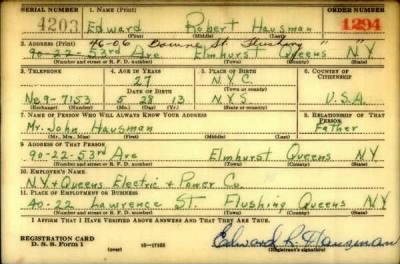 SERIAL NUMBER 1. NAME (Print) ORDER NUMBER
4203 Edward Robert Hausman 1294
(First) (Middle) (Last)
2. ADDRESS (Print) 46-06 Bowne St. Flushing "
90-22-53rd Ave Elmhurst Queens N.Y.
(Number and street or R. F. D. number) (Town) (County) (State)
3. TELEPHONE 4. AGE IN YEARS 5. PLACE OF BIRTH 6. COUNTRY OF CITIZENSHIP
27 N.Y.C.
DATE OF BIRTH (Town or county)
No. 9-7153 5 28 13 N.Y.S. U.S.A.
(Mo.) (Day) (Yr.) (State or country)
7. NAME OF PERSON WHO WILL ALWAYS KNOW YOUR ADDRESS 8. RELATIONSHIP OF THAT PERSON
Mr. John Hausman Father
(Mr., Mrs., Miss) (First) (Middle) (Last)
9. ADDRESS OF THAT PERSON
90-22-53rd Ave Elmhurst Queens N.Y.
(Number and street or R. F. D. number) (Town) (County) (State)
10. EMPLOYER'S NAME
N.Y. & Queens Electric & Power Co.
11. PLACE OF EMPLOYMENT OR BUSINESS
40-22 Lawrence St. Flushing Queens N.Y.
(Number and street or R. F. D. number) (Town) (County) (State)
I AFFIRM THAT I HAVE VERIFIED ABOVE ANSWERS AND THAT THEY ARE TRUE.
REGISTRATION CARD
D. S. S. Form 1 (over) 16-17105 Edward R. Hausman
(Registrant's signature)